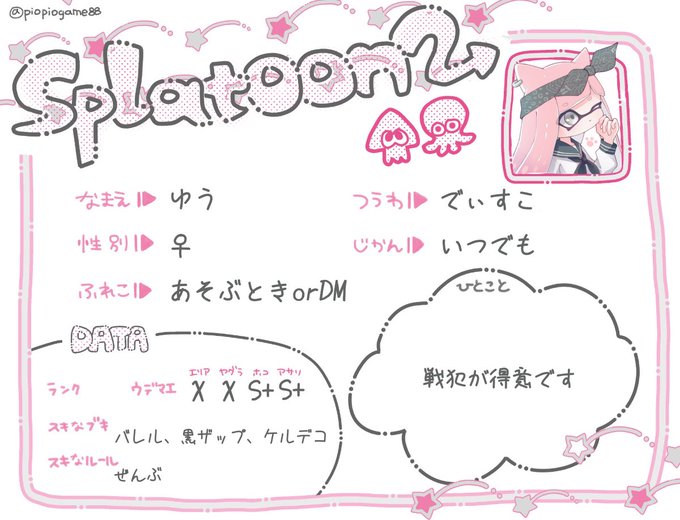 @piopiogame88
Splatoon2
なまえ ゆう
つうわ でぃすこ
性別 ♀
じかん いつでも
ふれこ あそぶときorDM
ひとこと
戦犯が得意です
DATA
エリア ヤグラ ホコ アサリ
ランク ウデマエ X X S+ S+
スキなブキ バレル、黒ザップ、ケルデコ
スキなルール ぜんぶ